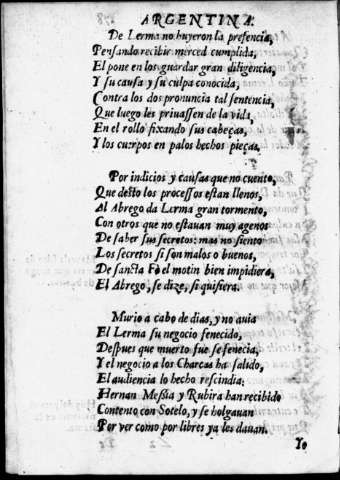 ARGENTINA.
De Lerma no huyeron la presencia,
Pensando recibir merced cumplida,
El pone en los guardar gran diligencia,
Y su causa y su culpa conocida,
Contra los dos pronuncia tal sentencia,
Que luego les priuassen de la vida,
En el rollo fixando sus cabeças,
Y los cuerpos en palos hechos pieças.
Por indicios y causas que no cuento,
Que desto los processos estan llenos,
Al Abrego da Lerma gran tormento,
Con otros que no estauan muy agenos
De saber sus secretos: mas no siento
Los secretos si son malos o buenos,
De sancta Fè el motin bien impidiera,
El Abrego, se dize, si quisiera.
Murio a cabo de dias, y no auia
El Lerma su negocio fenecido,
Despues que muerto fue se fenecia,
Y el negocio a los Charcas ha salido,
El audiencia lo hecho rescindia:
Hernan Messia y Rubira han recibido
Contento con Sotelo, y se holgauan
Por ver como por libres ya les dauan.
Yo